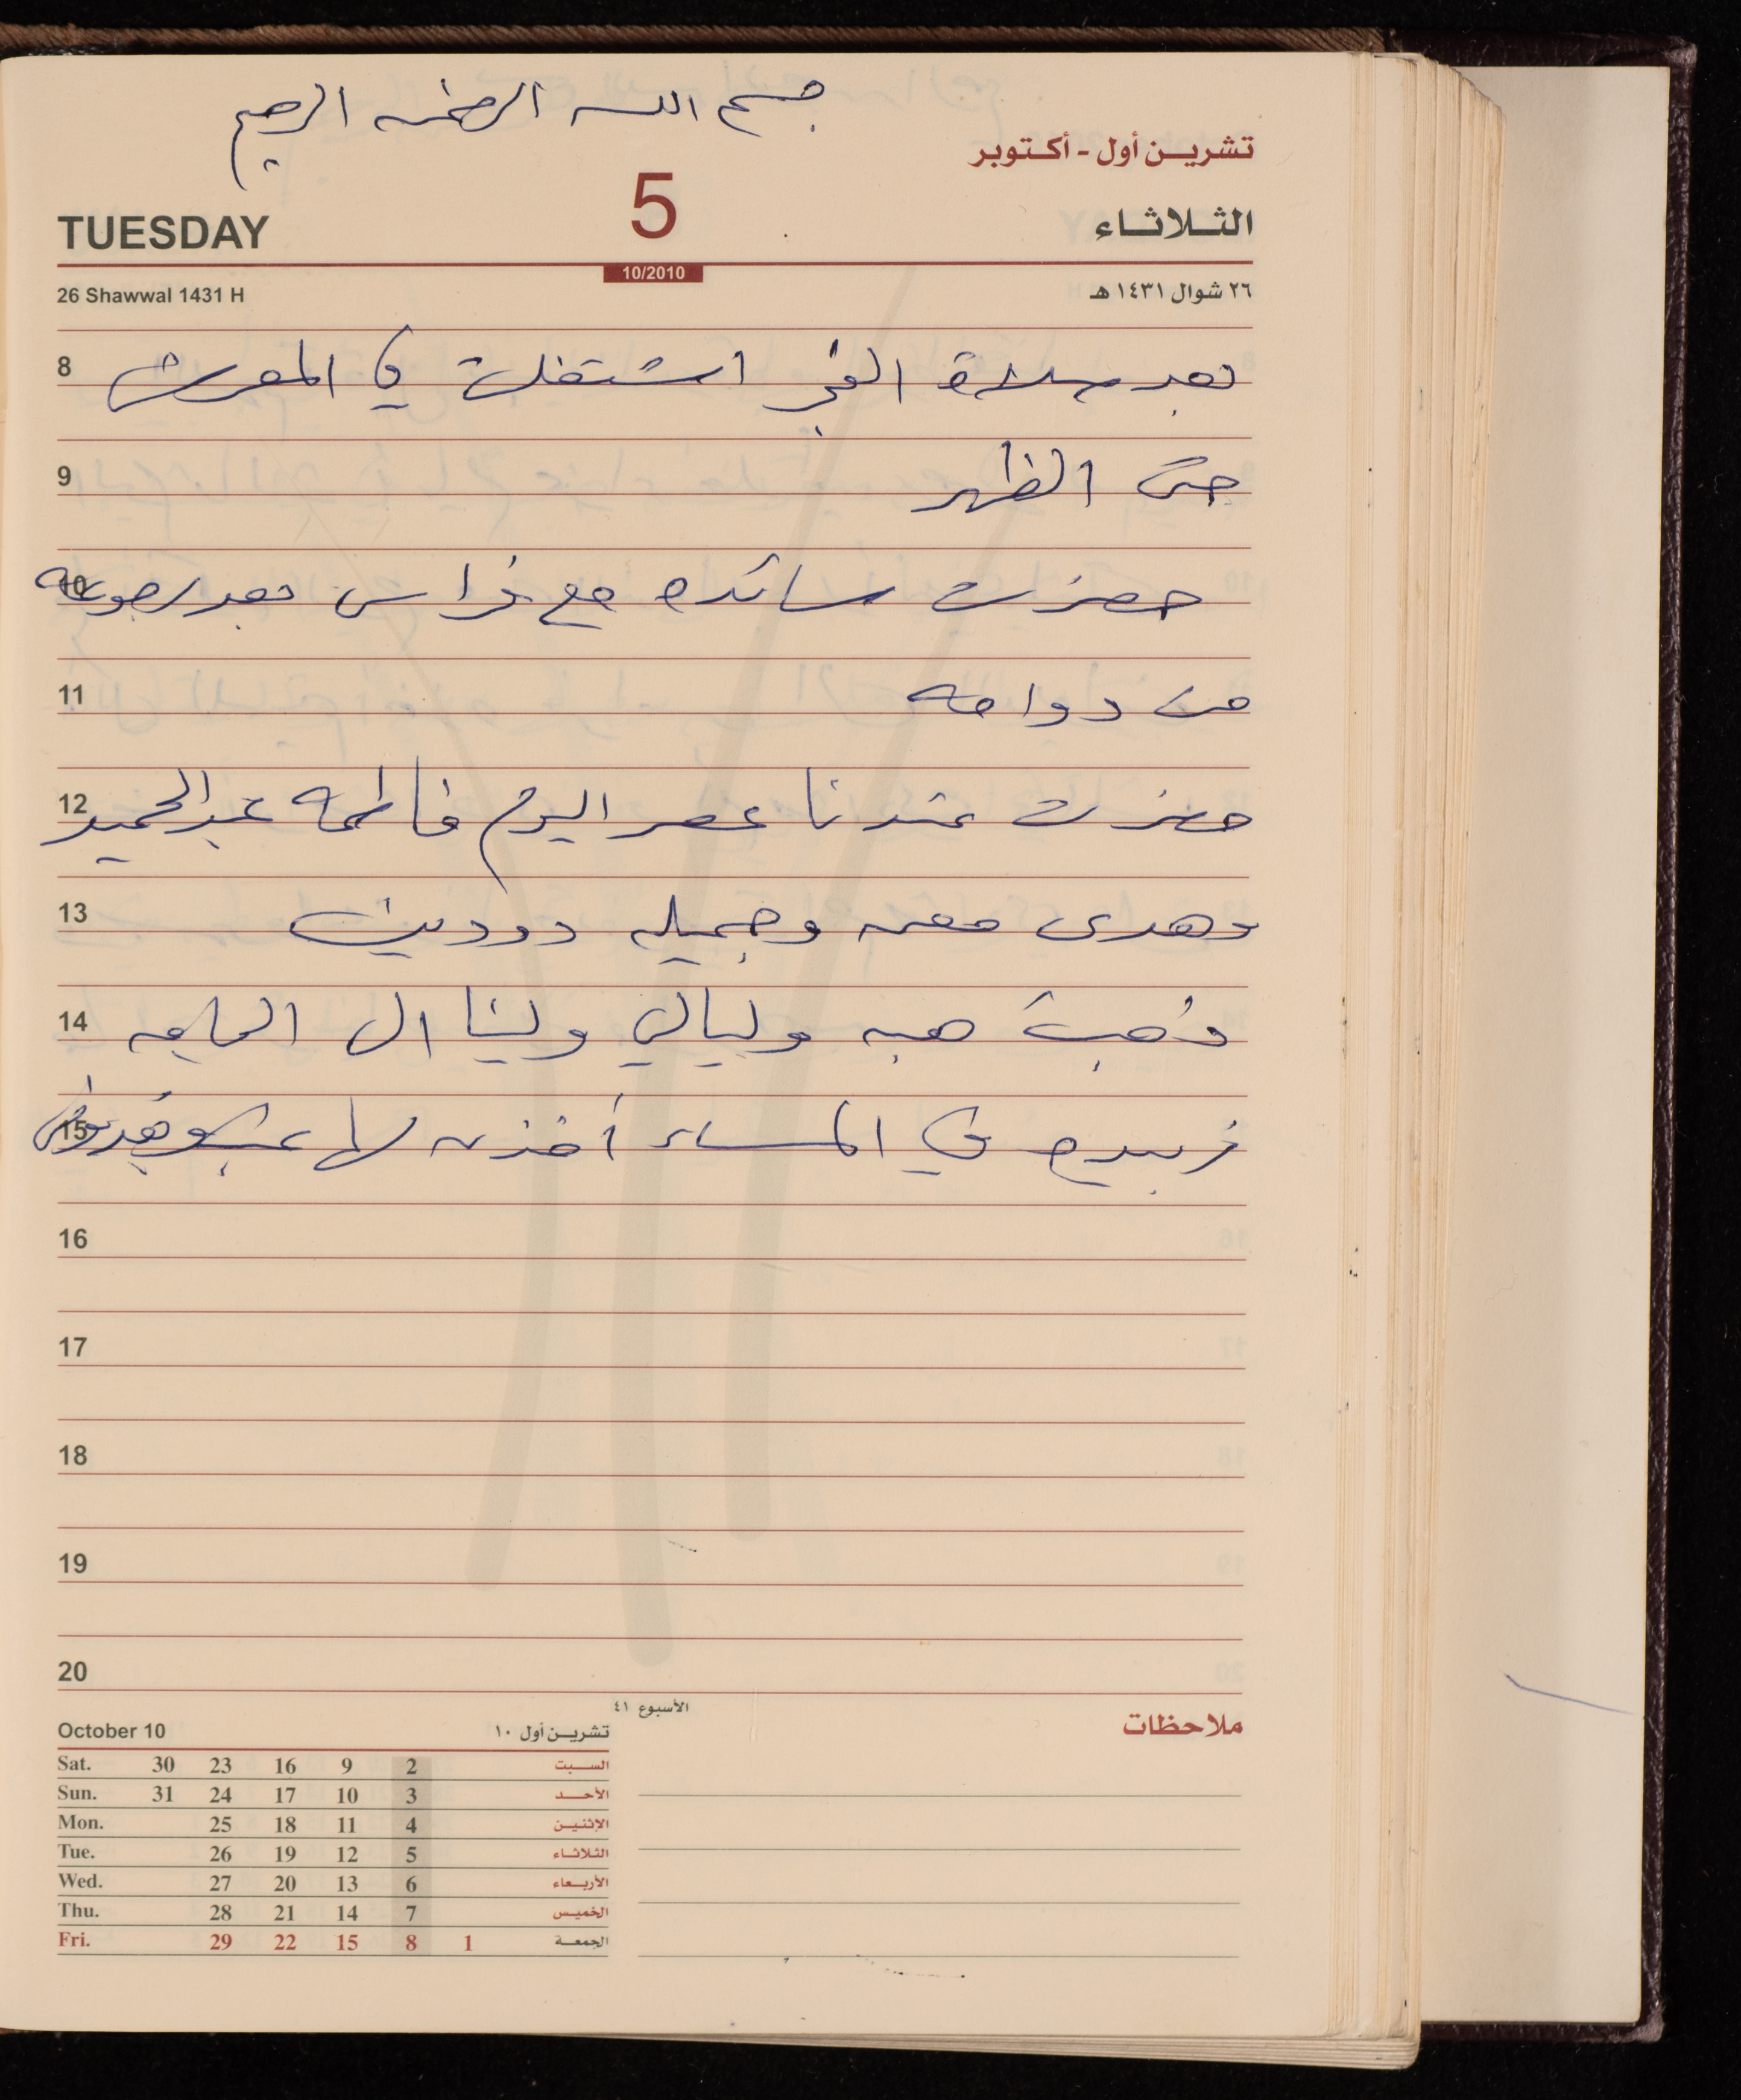 بسم الله الرحمن الرحيم
تشريـن أول - أكـتوبر
TUESDAY 5 الثـلاثـاء
10/2010
26 Shawwal 1431 H ٢٦ شوال ١٤٣١ هـ
8 بعد صلاة الفجر اشتغلت في المعرش
9 حتى الظهر
10 حضرت سائده مع فراس بعد رجوعه
11 من دوامه
12 حضرت عندنا عصر اليوم فاطمه عبد الحميد
13 وهدى معن وجميله دودين
14 ذهبت هبه وليالي ولينا الى
15 زبيده في المساء أخذت لها
16
17
18
19
20
الأسبوع ٤١
ملاحظات
October 10 تشريـن أول ١٠
Sat. 30 23 16 9 2 السـبت
Sun. 31 24 17 10 3 الأحـد
Mon. 25 18 11 4 الإثنيـن
Tue. 26 19 12 5 الثلاثـاء
Wed. 27 20 13 6 الأربـعاء
Thu. 28 21 14 7 الخميـس
Fri. 29 22 15 8 1 الجمعـة